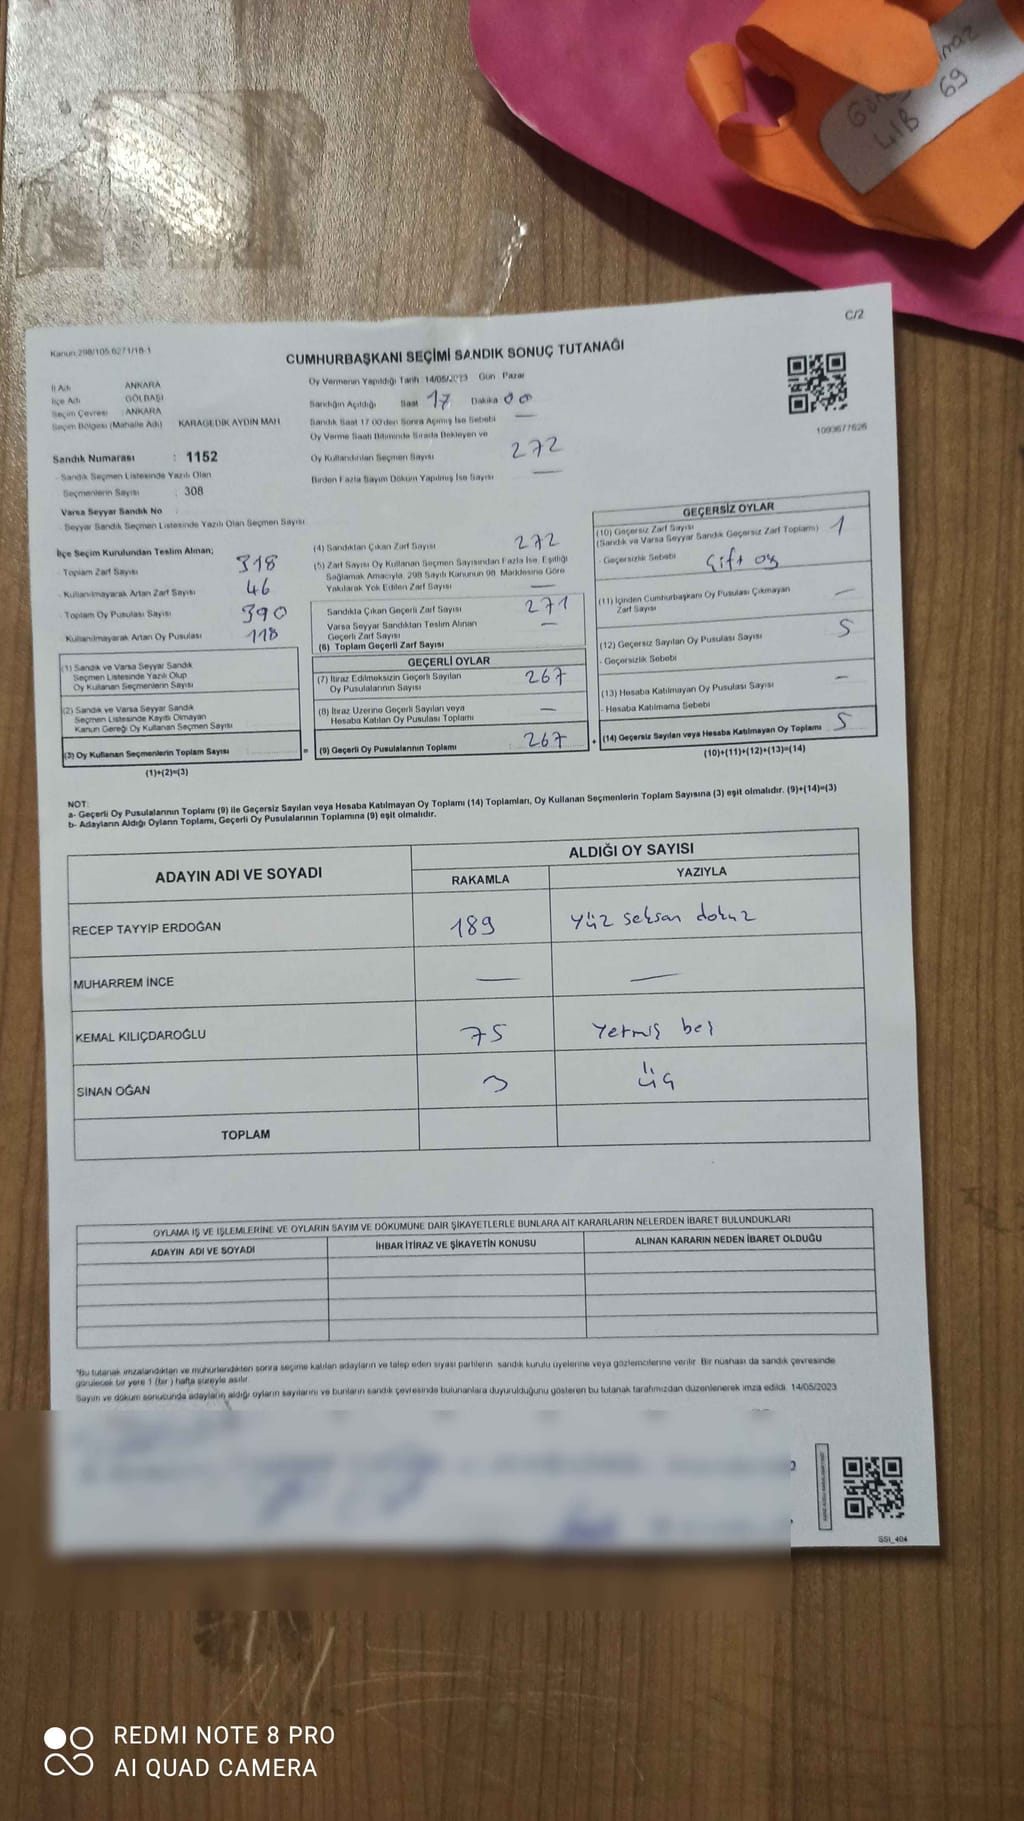 69
41B
C/2
Kanun:298/105.6271/18-1
CUMHURBAŞKANI SEÇİMİ SANDIK SONUÇ TUTANAĞI
İl Adı ANKARA
İlçe Adı GÖLBAŞI
Seçim Çevresi : ANKARA
Seçim Bölgesi (Mahalle Adı) KARAGEDİK AYDIN MAH
Sandık Numarası : 1152
- Sandık Seçmen Listesinde Yazılı Olan
Seçmenlerin Sayısı : 308
Varsa Seyyar Sandık No
- Seyyar Sandık Seçmen Listesinde Yazılı Olan Seçmen Sayısı
Oy Vermenin Yapıldığı Tarih :14/05/2023 Gün : Pazar
Sandığın Açıldığı Saat 17 Dakika 00
Sandık Saat 17.00'den Sonra Açılmış İse Sebebi —
Oy Verme Saati Bitiminde Sırada Bekleyen ve
Oy Kullandırılan Seçmen Sayısı 272
Birden Fazla Sayım Döküm Yapılmış İse Sayısı —
1093677626
İlçe Seçim Kurulundan Teslim Alınan;
- Toplam Zarf Sayısı 318
- Kullanılmayarak Artan Zarf Sayısı 46
- Toplam Oy Pusulası Sayısı 390
- Kullanılmayarak Artan Oy Pusulası 118
(1) Sandık ve Varsa Seyyar Sandık
Seçmen Listesinde Yazılı Olup
Oy Kullanan Seçmenlerin Sayısı
(2) Sandık ve Varsa Seyyar Sandık
Seçmen Listesinde Kayıtlı Olmayan
Kanun Gereği Oy Kullanan Seçmen Sayısı
(3) Oy Kullanan Seçmenlerin Toplam Sayısı =
(1)+(2)=(3)
(4) Sandıktan Çıkan Zarf Sayısı 272
(5) Zarf Sayısı Oy Kullanan Seçmen Sayısından Fazla İse, Eşitliği
Sağlamak Amacıyla, 298 Sayılı Kanunun 98. Maddesine Göre
Yakılarak Yok Edilen Zarf Sayısı —
Sandıkta Çıkan Geçerli Zarf Sayısı 271
Varsa Seyyar Sandıktan Teslim Alınan
Geçerli Zarf Sayısı —
(6) Toplam Geçerli Zarf Sayısı
GEÇERLİ OYLAR
(7) İtiraz Edilmeksizin Geçerli Sayılan
Oy Pusulalarının Sayısı 267
(8) İtiraz Üzerine Geçerli Sayılan veya
Hesaba Katılan Oy Pusulası Toplamı —
(9) Geçerli Oy Pusulalarının Toplamı 267 +
GEÇERSİZ OYLAR
(10) Geçersiz Zarf Sayısı
(Sandık ve Varsa Seyyar Sandık Geçersiz Zarf Toplamı) 1
- Geçersizlik Sebebi Çift oy
(11) İçinden Cumhurbaşkanı Oy Pusulası Çıkmayan
Zarf Sayısı —
(12) Geçersiz Sayılan Oy Pusulası Sayısı 5
- Geçersizlik Sebebi
(13) Hesaba Katılmayan Oy Pusulası Sayısı —
- Hesaba Katılmama Sebebi
(14) Geçersiz Sayılan veya Hesaba Katılmayan Oy Toplamı 5
(10)+(11)+(12)+(13)=(14)
NOT:
a- Geçerli Oy Pusulalarının Toplamı (9) ile Geçersiz Sayılan veya Hesaba Katılmayan Oy Toplamı (14) Toplamları, Oy Kullanan Seçmenlerin Toplam Sayısına (3) eşit olmalıdır. (9)+(14)=(3)
b- Adayların Aldığı Oyların Toplamı, Geçerli Oy Pusulalarının Toplamına (9) eşit olmalıdır.
ADAYIN ADI VE SOYADI ALDIĞI OY SAYISI
RAKAMLA YAZIYLA
RECEP TAYYİP ERDOĞAN 189 yüz seksan dokuz
MUHARREM İNCE — —
KEMAL KILIÇDAROĞLU 75 Yetmiş beş
SİNAN OĞAN 3 üç
TOPLAM
OYLAMA İŞ VE İŞLEMLERİNE VE OYLARIN SAYIM VE DÖKÜMÜNE DAİR ŞİKAYETLERLE BUNLARA AİT KARARLARIN NELERDEN İBARET BULUNDUKLARI
ADAYIN ADI VE SOYADI İHBAR İTİRAZ VE ŞİKAYETİN KONUSU ALINAN KARARIN NEDEN İBARET OLDUĞU
*Bu tutanak imzalandıktan ve mühürlendikten sonra seçime katılan adayların ve talep eden siyasi partilerin sandık kurulu üyelerine veya gözlemcilerine verilir. Bir nüshası da sandık çevresinde
görülecek bir yere 1 (bir ) hafta süreyle asılır.
Sayım ve döküm sonucunda adayların aldığı oyların sayılarını ve bunların sandık çevresinde bulunanlara duyurulduğunu gösteren bu tutanak tarafımızdan düzenlenerek imza edildi. 14/05/2023
SSI_404
REDMI NOTE 8 PRO
AI QUAD CAMERA